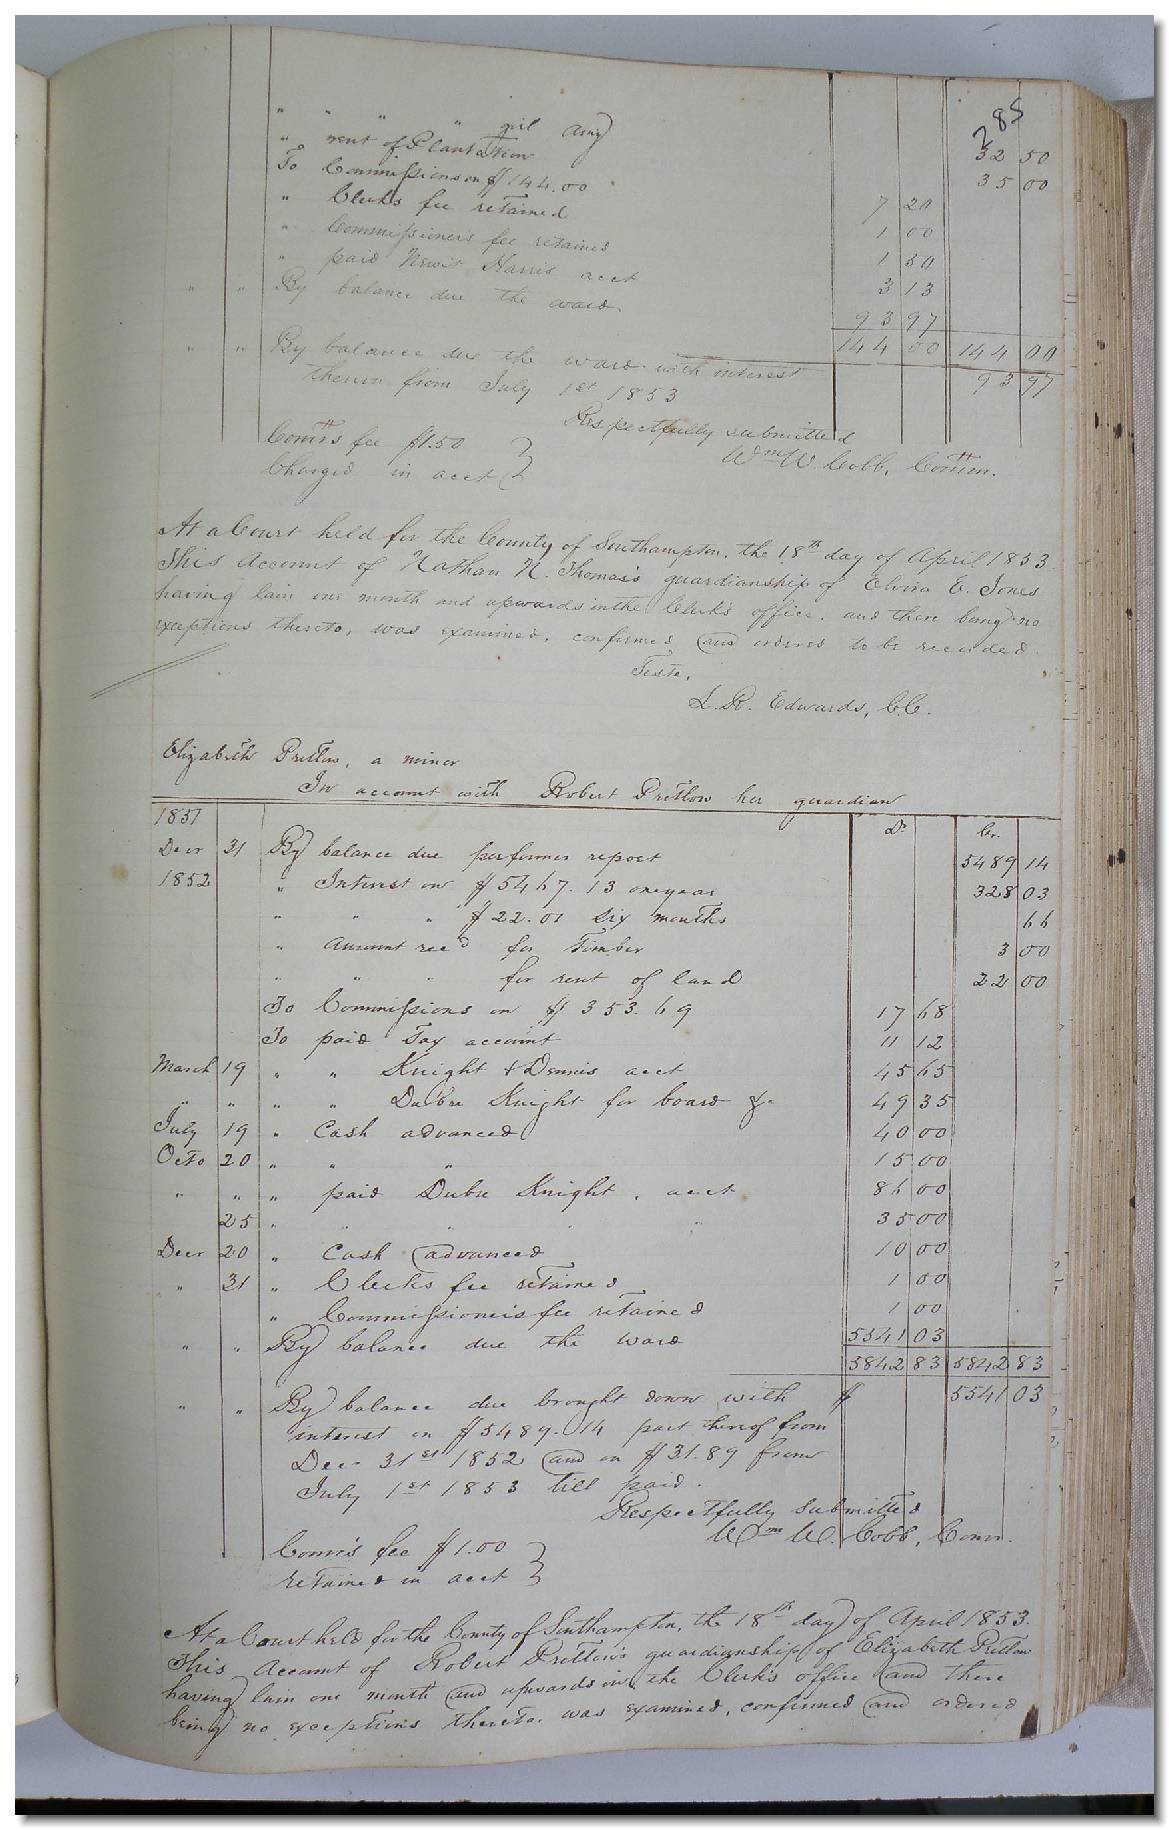 285
" " " " girl Amy 32 50
" rent of Plantation 35 00
To Commissions on $144.00 7 20
" Clerks fee retained 1 00
" Commissioners fee retained 1 50
" paid Newit Harris acct 3 13
" " By balance due the ward 93 97
144 00 144 00
" " By balance due the ward with interest 93 97
thereon from July 1st 1853
Respectfully submitted
Wm W. Cobb, Comm.
Comrs fee $1.50
Charged in acct
At a Court held for the County of Southampton, the 18th day of April 1853
This Account of Nathan N. Thomas's guardianship of Elvira E. Jones
having lain one month and upwards in the Clerk's office, and there being no
exceptions thereto, was examined, confirmed and ordered to be recorded.
Teste,
L. R. Edwards, CC.
Elizabeth Pretlow, a minor
In account with Robert Pretlow her guardian
1851 Dr Cr.
Decr 31 By balance due per former report 5489 14
1852 " Interest on $5467.13 one year 328 03
" " " $22.01 six months 66
" Amount recd for Timber 3 00
" " " for rent of land 22 00
To Commissions on $353.69 17 68
To paid Tax account 11 12
March 19 " " Knight & Dennis acct 45 65
" " " " Dubre Knight for board &c 49 35
July 19 " Cash advanced 40 00
Octo 20 " " " 15 00
" " " paid Dubre Knight, acct 86 00
25 " " " " " 35 00
Decr 20 " Cash advanced 10 00
" 31 " Clerks fee retained 1 00
" Commissioner's fee retained 1 00
" " By balance due the ward 5541 03
5842 83 5842 83
" " By balance due brought down with $ 5541 03
interest on $5489.14 part thereof from
Decr 31st 1852 and on $31.89 from
July 1st 1853 till paid.
Respectfully submitted
Wm W. Cobb, Comr.
Comr's fee $1.00
retained in acct
At a Court held for the County of Southampton, the 18th day of April 1853.
This Account of Robert Pretlow's guardianship of Elizabeth Pretlow
having lain one month and upwards in the Clerk's office and there
being no exceptions thereto, was examined, confirmed and ordered